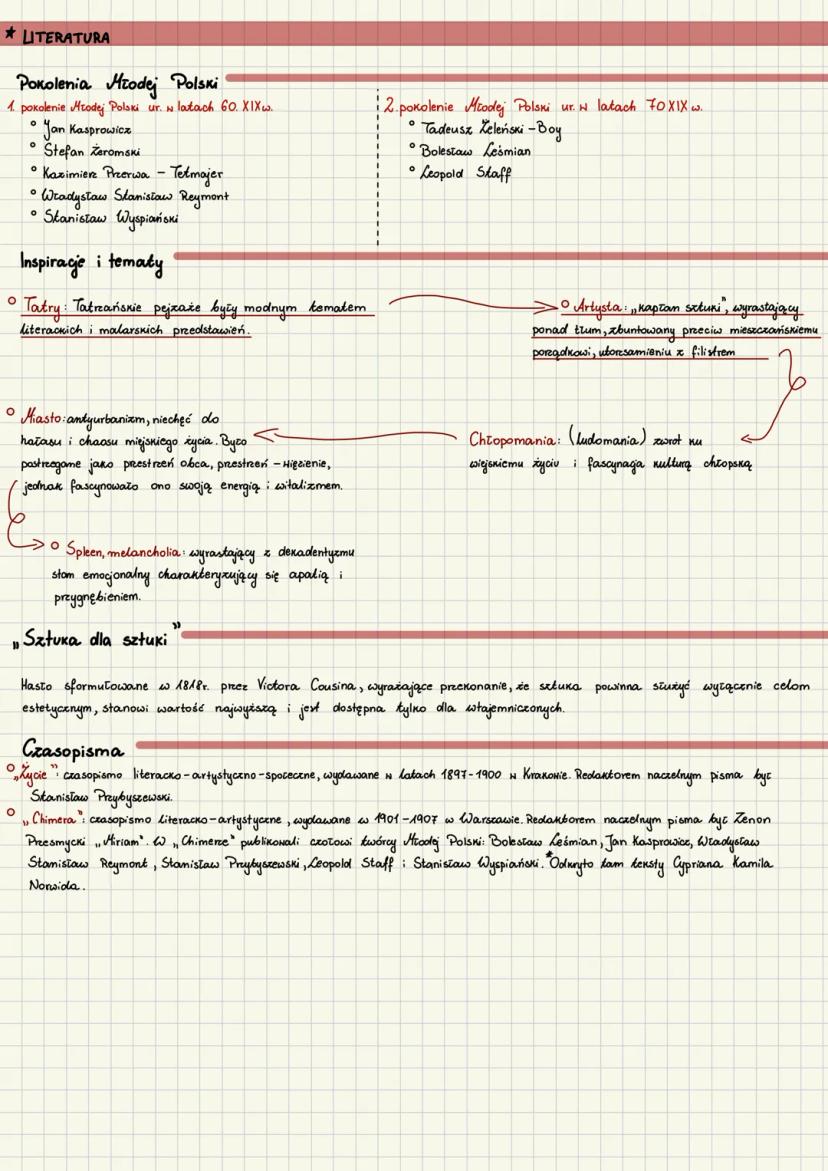 * LITERATURA
Pokolenia Młodej Polski
1. pokolenie Młodej Polski ur. w latach 60. XIX w.
° Jan Kasprowicz
° Stefan Żeromski
° Kazimierz Przerwa - Tetmajer
° Władysław Stanisław Reymont
° Stanisław Wyspiański
2. pokolenie Młodej Polski ur. w latach 70 XIX w.
° Tadeusz Żeleński - Boy
° Bolesław Leśmian
° Leopold Staff
Inspiracje i tematy
° Tatry: Tatrzańskie pejzaże były modnym tematem
literackich i malarskich przedstawień.
° Artysta: „kapłan sztuki”, wyrastający
ponad tłum, zbuntowany przeciw mieszczańskiemu
porządkowi, utorsamieniu z filistrem
° Miasto: antyurbanizm, niechęć do
hałasu i chaosu miejskiego życia. Było
postrzegane jako przestrzeń obca, przestrzeń - więzienie,
jednak fascynowało ono swoją energią i witalizmem.
Chłopomania: (ludomania) zwrot ku
wiejskiemu życiu i fascynacja kulturą chłopską
° Spleen, melancholia: wyrastający z dekadentyzmu
stan emocjonalny charakteryzujący się apatią i
przygnębieniem.
„Sztuka dla sztuki”
Hasło sformułowane w 1818r. przez Victora Cousina, wyrażające przekonanie, że sztuka powinna służyć wyłącznie celom
estetycznym, stanowi wartość najwyższą i jest dostępna tylko dla wtajemniczonych.
Czasopisma
° „Życie”: czasopismo literacko-artystyczno-społeczne, wydawane w latach 1897-1900 w Krakowie. Redaktorem naczelnym pisma był
Stanisław Przybyszewski.
° „Chimera”: czasopismo literacko-artystyczne, wydawane w 1901-1907 w Warszawie. Redaktorem naczelnym pisma był Zenon
Przesmycki „Miriam”. W „Chimerze” publikowali czołowi twórcy Młodej Polski: Bolesław Leśmian, Jan Kasprowicz, Władysław
Stanisław Reymont, Stanisław Przybyszewski, Leopold Staff i Stanisław Wyspiański. *Odkryto tam teksty Cypriana Kamila
Norwida.